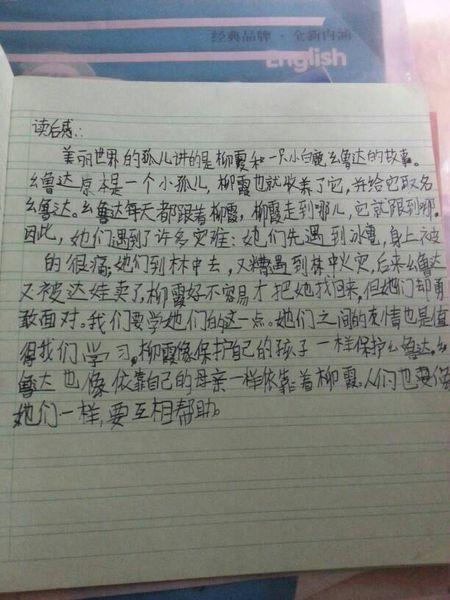 经典品牌·全新内涵
English
读后感:
美丽世界的孤儿讲的是柳霞和一只小白鹿幺鲁达的故事。
幺鲁达原本是一个小孤儿,柳霞也就收养了它,并给它取名
幺鲁达。幺鲁达每天都跟着柳霞,柳霞走到哪儿,它就跟到哪。
因此,她们遇到了许多灾难:她们先遇到冰雹,身上被
的很痛,她们到林中去,又遭遇到林中火灾,后来幺鲁达
又被达娃卖了,柳霞好不容易才把她找回来,但她们却勇
敢面对。我们要学她们的这一点。她们之间的友情也是值
得我们学习。柳霞像保护自己的孩子一样保护幺鲁达。幺
鲁达也像依靠自己的母亲一样依靠着柳霞。人们也要像
她们一样,要互相帮助。